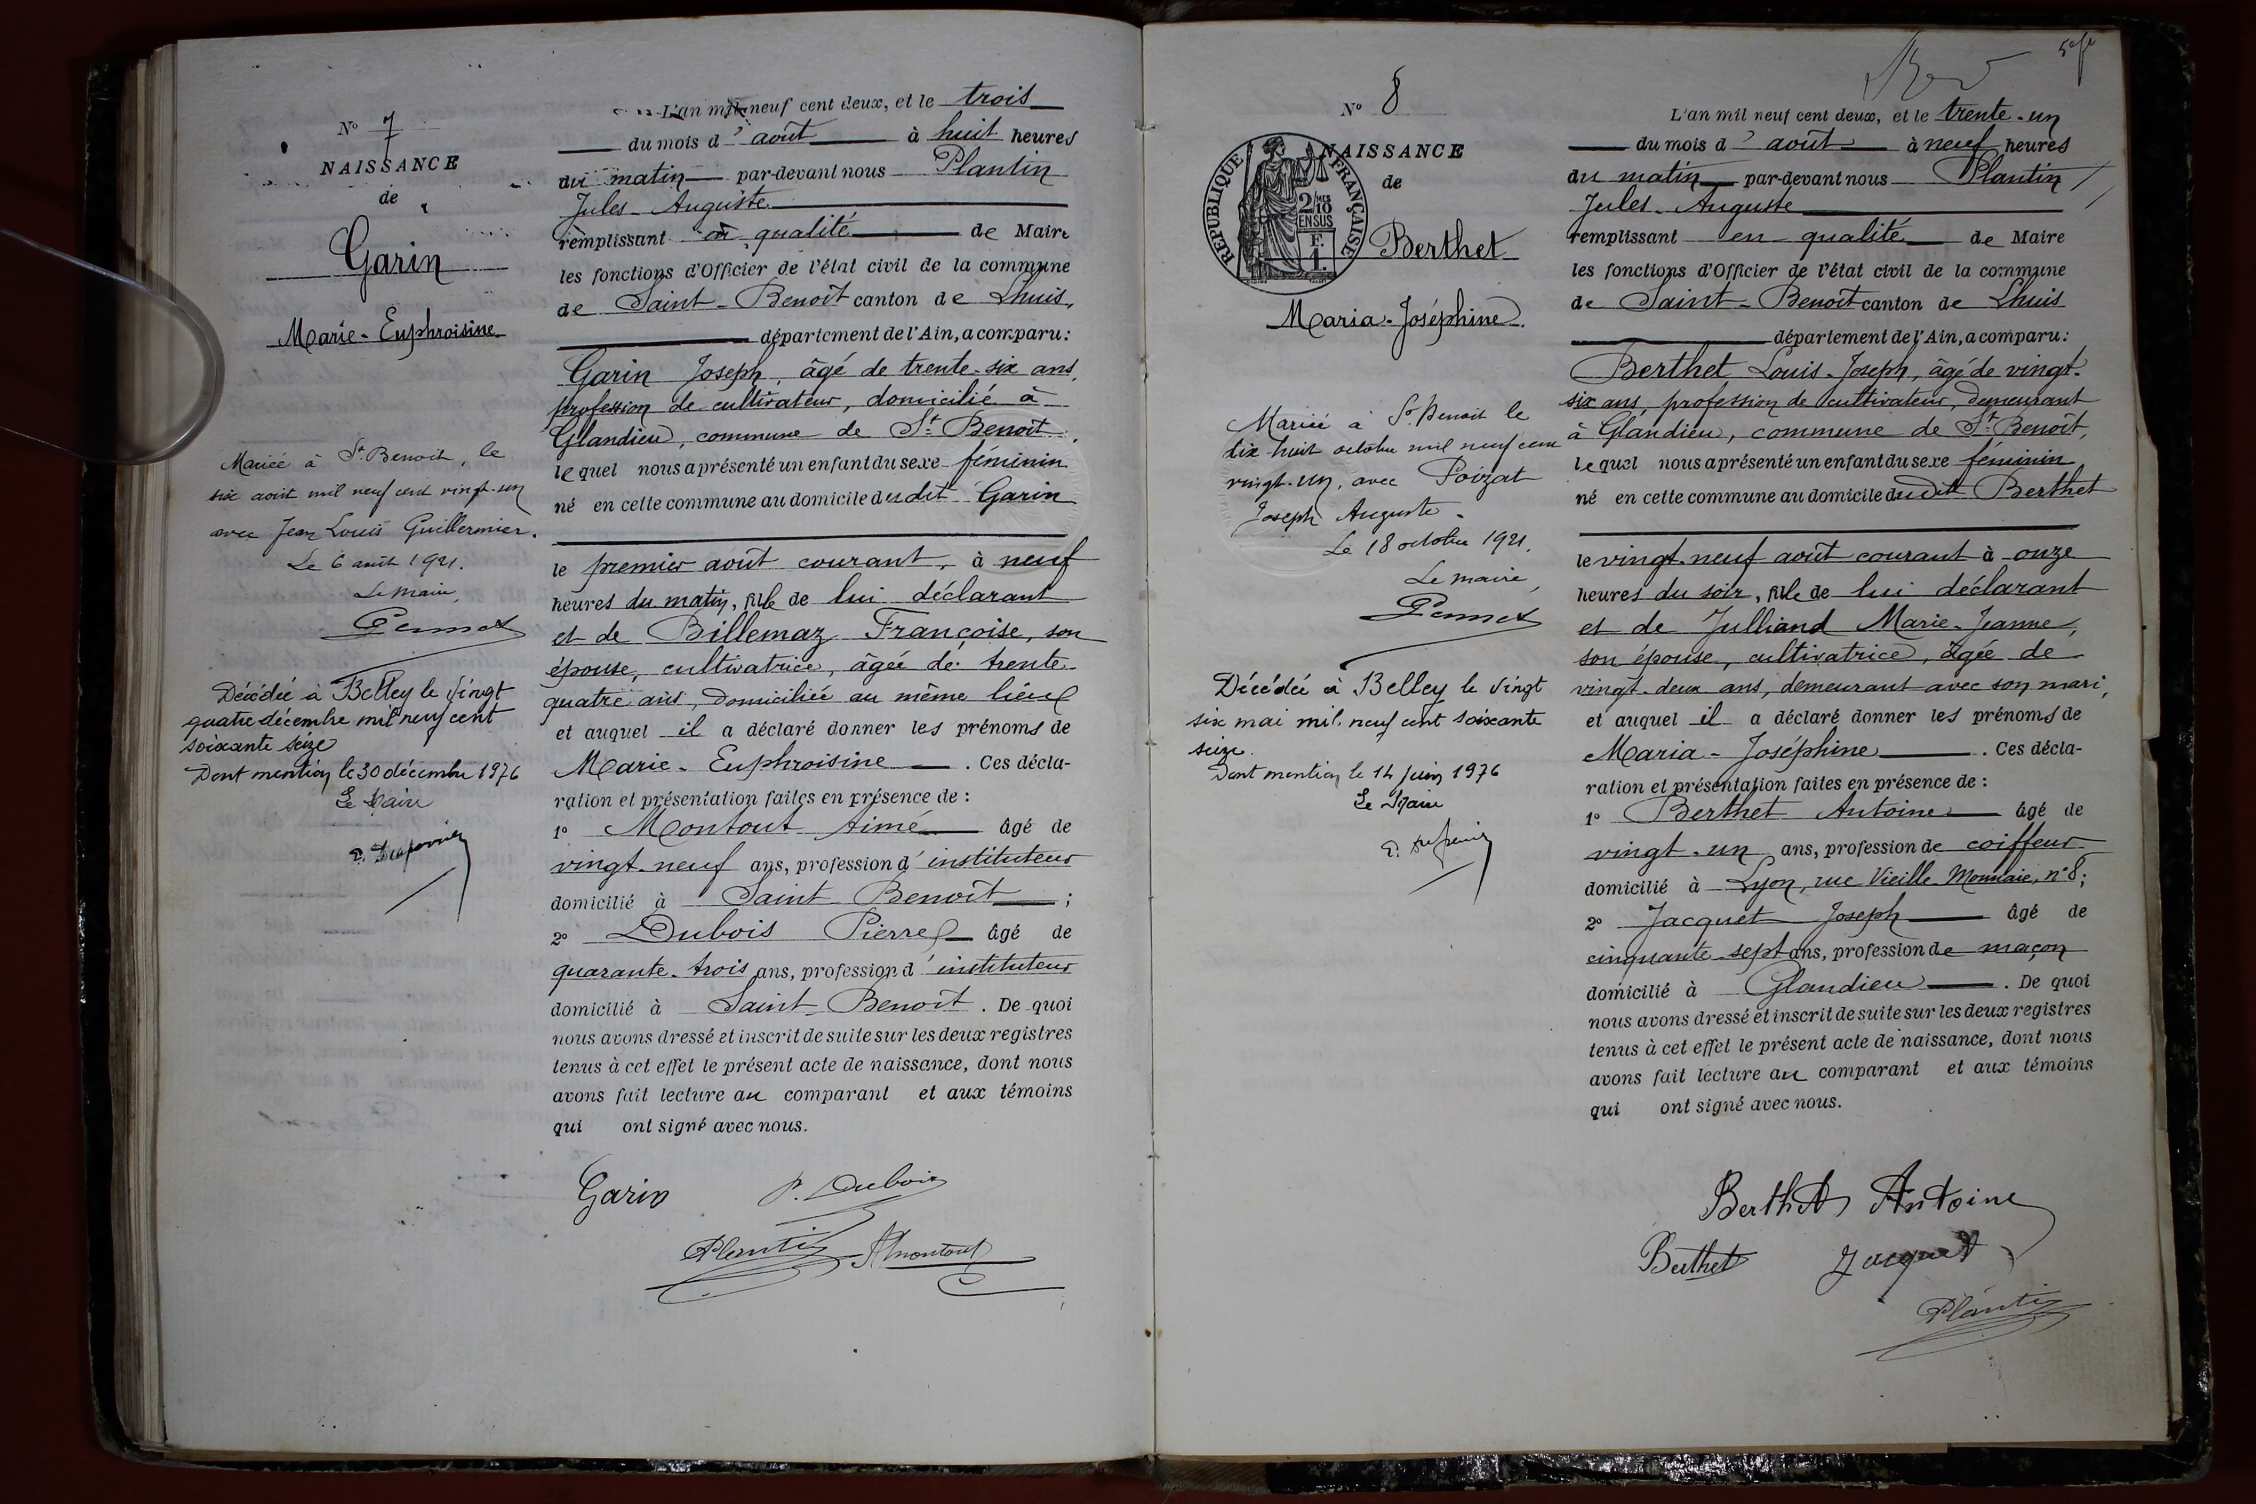 N° 7
NAISSANCE
de
Garin
Marie-Euphroisine
Mariée à St Benoit, le
six août mil neuf cent vingt-un
avec Jean Louis Guillermier.
Le 6 août 1921.
Le Maire,
Décédée à Belley le vingt
quatre décembre mil neuf cent
soixante seize
Dont mention le 30 décembre 1976
Le Maire
L'an mil neuf cent deux, et le trois
du mois d'août à huit heures
du matin par-devant nous Plantin
Jules Auguste
remplissant en qualité de Maire
les fonctions d'Officier de l'état civil de la commune
de Saint-Benoît canton de Lhuis,
département de l'Ain, a comparu:
Garin Joseph, âgé de trente-six ans,
profession de cultivateur, domicilié à
Glandieu, commune de St Benoît,
lequel nous a présenté un enfant du sexe féminin
né en cette commune au domicile dudit Garin
le premier août courant, à neuf
heures du matin, fille de lui déclarant
et de Billemaz Françoise, son
épouse, cultivatrice, âgée de trente-
quatre ans, domiciliée au même lieu
et auquel il a déclaré donner les prénoms de
Marie-Euphroisine. Ces décla-
ration et présentation faites en présence de :
1° Montout Aimé âgé de
vingt-neuf ans, profession d'instituteur
domicilié à Saint Benoît ;
2° Dubois Pierre âgé de
quarante-trois ans, profession d'instituteur
domicilié à Saint-Benoît. De quoi
nous avons dressé et inscrit de suite sur les deux registres
tenus à cet effet le présent acte de naissance, dont nous
avons fait lecture au comparant et aux témoins
qui ont signé avec nous.
Garin P. Dubois
Plantin AMontout
N° 8
NAISSANCE
de
REPUBLIQUE FRANÇAISE
2/10
EN SUS
F.
1.
Berthet
Maria-Joséphine.
Mariée à St Benoit le
dix-huit octobre mil neuf cent
vingt-un, avec Poizat
Joseph Auguste.
Le 18 octobre 1921.
Le maire,
Décédée à Belley le vingt
six mai mil neuf cent soixante
seize.
Dont mention le 14 juin 1976
Le Maire
L'an mil neuf cent deux, et le trente-un
du mois d'août à neuf heures
du matin par-devant nous Plantin
Jules-Auguste
remplissant en qualité de Maire
les fonctions d'Officier de l'état civil de la commune
de Saint-Benoît canton de Lhuis
département de l'Ain, a comparu:
Berthet Louis-Joseph, âgé de vingt-
six ans, profession de cultivateur, demeurant
à Glandieu, commune de St Benoît,
lequel nous a présenté un enfant du sexe féminin
né en cette commune au domicile dudit Berthet
le vingt-neuf août courant à onze
heures du soir, fille de lui déclarant
et de Julliand Marie-Jeanne,
son épouse, cultivatrice, âgée de
vingt-deux ans, demeurant avec son mari,
et auquel il a déclaré donner les prénoms de
Maria-Joséphine. Ces décla-
ration et présentation faites en présence de :
1° Berthet Antoine âgé de
vingt-un ans, profession de coiffeur
domicilié à Lyon, rue Vieille-Monnaie, n° 8;
2° Jacquet Joseph âgé de
cinquante-sept ans, profession de maçon
domicilié à Glandieu. De quoi
nous avons dressé et inscrit de suite sur les deux registres
tenus à cet effet le présent acte de naissance, dont nous
avons fait lecture au comparant et aux témoins
qui ont signé avec nous.
Berthet Antoine
Berthet Jacquet
Plantin